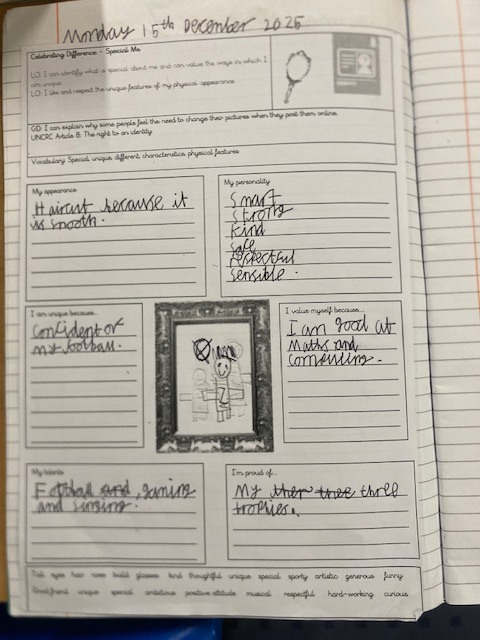 Monday 15th December 2025
Celebrating Difference - Special Me
LO: I can identify what is special about me and can value the ways in which I
am unique
LO: I like and respect the unique features of my physical appearance
GD: I can explain why some people feel the need to change their pictures when they post them online.
UNCRC Article 8: The right to an identity
Vocabulary: Special unique different characteristics physical features
My appearance
Haircut because it
is smooth.
My personality
Smart
Strong
kind
safe
respectful
sensible.
I am unique because...
Confident or
my football.
I value myself because...
I am good at
Maths and
computing.
My talents
Football and, gaming
and singing.
I'm proud of...
My ther tree three
trophies.
Tall eyes hair nose build glasses kind thoughtful unique special sporty artistic generous funny
Good friend unique special ambitious positive attitude musical respectful hard-working curious